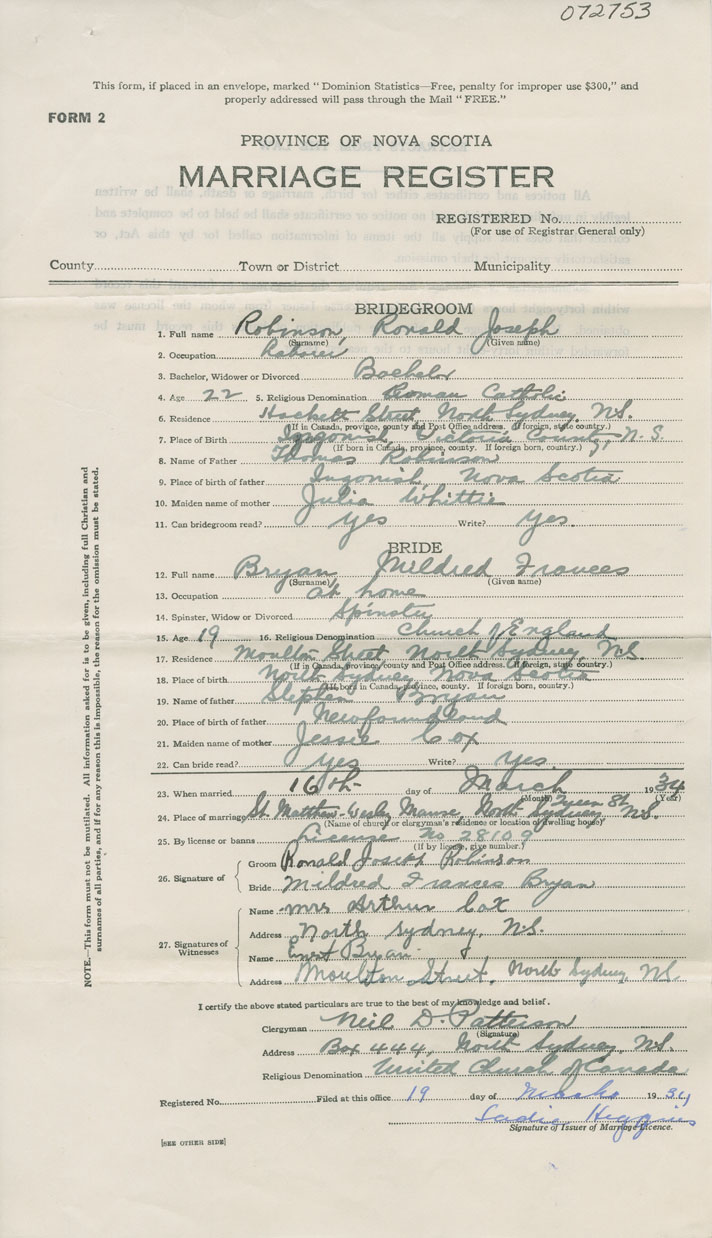 072753
This form, if placed in an envelope, marked "Dominion Statistics—Free, penalty for improper use $300," and
properly addressed will pass through the Mail "FREE."
FORM 2
PROVINCE OF NOVA SCOTIA
MARRIAGE REGISTER
REGISTERED No.
(For use of Registrar General only)
County Town or District Municipality
BRIDEGROOM
1. Full name Robinson, Ronald Joseph
(Surname) (Given name)
2. Occupation Laborer
3. Bachelor, Widower or Divorced Bachelor
4. Age 22 5. Religious Denomination Roman Catholic
6. Residence Hackett Street, North Sydney, N.S.
(If in Canada, province, county and Post Office address. If foreign, state country.)
7. Place of Birth Ingonish, Victoria County, N.S.
(If born in Canada, province, county. If foreign born, country.)
8. Name of Father Thomas Robinson
9. Place of birth of father Ingonish, Nova Scotia
10. Maiden name of mother Julia Whittie
11. Can bridegroom read? yes Write? yes.
BRIDE
12. Full name Bryan Mildred Frances
(Surname) (Given name)
13. Occupation at home
14. Spinster, Widow or Divorced Spinster
15. Age 19 16. Religious Denomination Church of England
17. Residence Moulton Street North Sydney, N.S.
(If in Canada, province, county and Post Office address. If foreign, state country.)
18. Place of birth North Sydney, Nova Scotia
(If born in Canada, province, county. If foreign born, country.)
19. Name of father Stephen Bryan
20. Place of birth of father Newfoundland
21. Maiden name of mother Jessie Cox
22. Can bride read? yes Write? yes.
23. When married 16th day of March 1934
(Month) (Year)
24. Place of marriage St. Matthew-Wesley Manse, Queen St. North Sydney N.S.
(Name of church or clergyman's residence or location of dwelling house)
25. By license or banns License No 28109
(If by license, give number.)
26. Signature of
Groom Ronald Joseph Robinson
Bride Mildred Frances Bryan
27. Signatures of Witnesses
Name Mrs Arthur Cox
Address North Sydney, N.S.
Name Ernest Bryan
Address Moulton Street, North Sydney, N.S.
I certify the above stated particulars are true to the best of my knowledge and belief.
Clergyman Neil D. Patterson
(Signature)
Address Box 444, North Sydney, N.S.
Religious Denomination United Church of Canada
Registered No. Filed at this office 19 day of 1934
Sadie Higgins
Signature of Issuer of Marriage Licence.
[SEE OTHER SIDE]
NOTE.—This form must not be mutilated. All information asked for is to be given, including full Christian and
surnames of all parties, and if for any reason this is impossible, the reason for the omission must be stated.